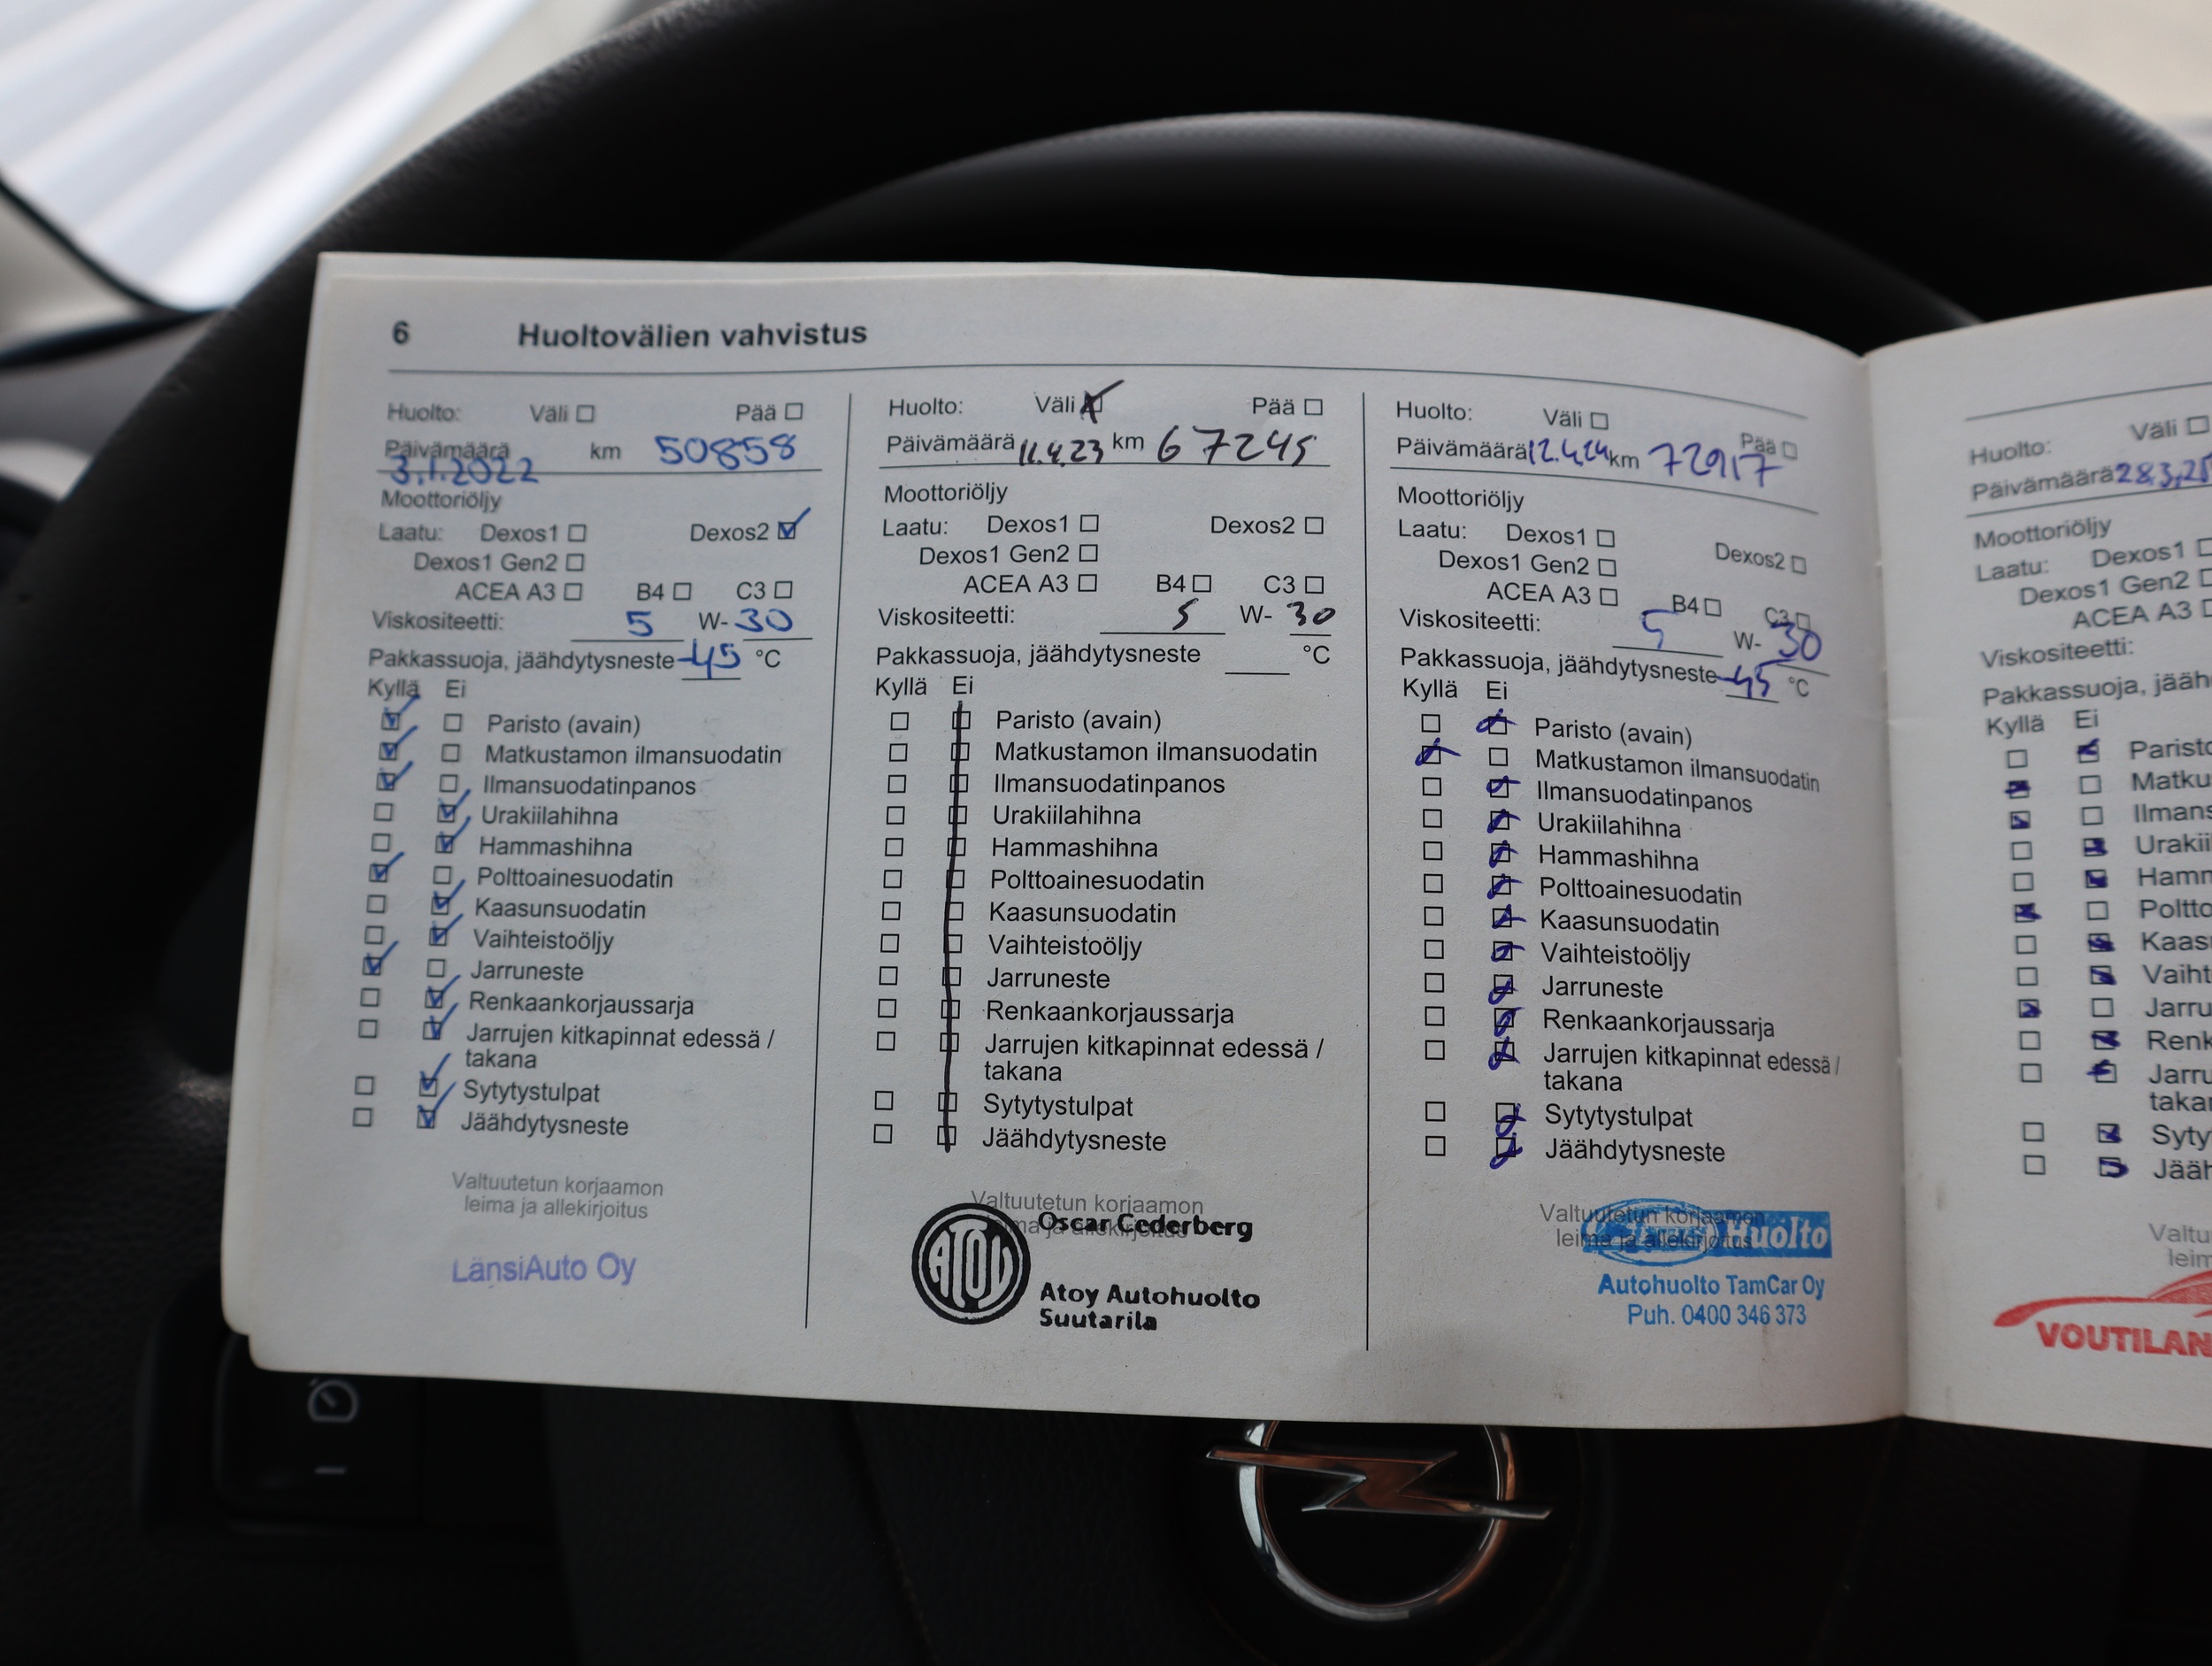 6 Huoltovälien vahvistus
Huolto: Väli Pää
Päivämäärä km 50858
3.1.2022
Moottoriöljy
Laatu: Dexos1 Dexos2
Dexos1 Gen2
ACEA A3 B4 C3
Viskositeetti: 5 W- 30
Pakkassuoja, jäähdytysneste -45 °C
Kyllä Ei
Paristo (avain)
Matkustamon ilmansuodatin
Ilmansuodatinpanos
Urakiilahihna
Hammashihna
Polttoainesuodatin
Kaasunsuodatin
Vaihteistoöljy
Jarruneste
Renkaankorjaussarja
Jarrujen kitkapinnat edessä /
takana
Sytytystulpat
Jäähdytysneste
Valtuutetun korjaamon
leima ja allekirjoitus
LänsiAuto Oy
Huolto: Väli Pää
Päivämäärä 11.4.23 km 67245
Moottoriöljy
Laatu: Dexos1 Dexos2
Dexos1 Gen2
ACEA A3 B4 C3
Viskositeetti: 5 W- 30
Pakkassuoja, jäähdytysneste °C
Kyllä Ei
Paristo (avain)
Matkustamon ilmansuodatin
Ilmansuodatinpanos
Urakiilahihna
Hammashihna
Polttoainesuodatin
Kaasunsuodatin
Vaihteistoöljy
Jarruneste
Renkaankorjaussarja
Jarrujen kitkapinnat edessä /
takana
Sytytystulpat
Jäähdytysneste
Valtuutetun korjaamon
leima ja allekirjoitus
ATOY
Oscar Cederberg
Atoy Autohuolto
Suutarila
Huolto: Väli Pää
Päivämäärä 12.4.24 km 72917
Moottoriöljy
Laatu: Dexos1 Dexos2
Dexos1 Gen2
ACEA A3 B4 C3
Viskositeetti: 5 W- 30
Pakkassuoja, jäähdytysneste -45 °C
Kyllä Ei
Paristo (avain)
Matkustamon ilmansuodatin
Ilmansuodatinpanos
Urakiilahihna
Hammashihna
Polttoainesuodatin
Kaasunsuodatin
Vaihteistoöljy
Jarruneste
Renkaankorjaussarja
Jarrujen kitkapinnat edessä /
takana
Sytytystulpat
Jäähdytysneste
Valtuutetun korjaamon
leima ja allekirjoitus
Huolto
Autohuolto TamCar Oy
Puh. 0400 346 373
Huolto: Väli
Päivämäärä 28.3.25
Moottoriöljy
Laatu: Dexos1
Dexos1 Gen2
ACEA A3
Viskositeetti:
Pakkassuoja, jääh
Kyllä Ei
Paristo
Matku
Ilmans
Urakii
Hamm
Poltto
Kaasu
Vaiht
Jarru
Renk
Jarru
takar
Syty
Jääh
Valtu
leim
VOUTILAN